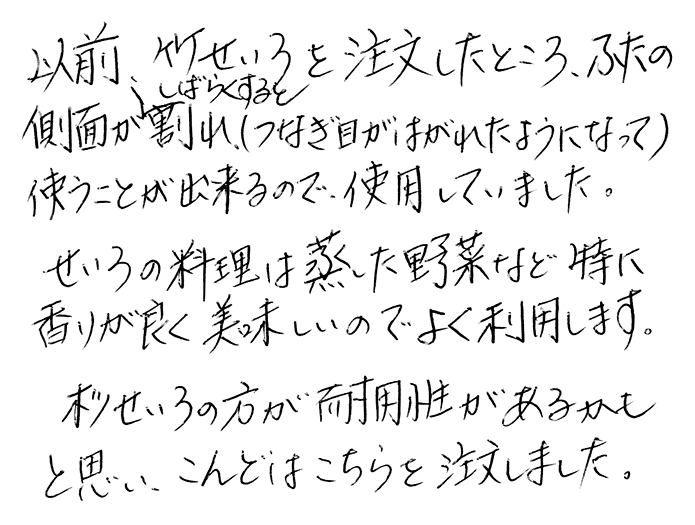 以前、竹せいろを注文したところ、ふたの
しばらくすると
側面が割れ、(つなぎ目がはがれたようになって)
使うことが出来るので、使用していました。
せいろの料理は蒸した野菜など特に
香りが良く美味しいのでよく利用します。
杉せいろの方が耐用性があるかも
と思い、こんどはこちらを注文しました。